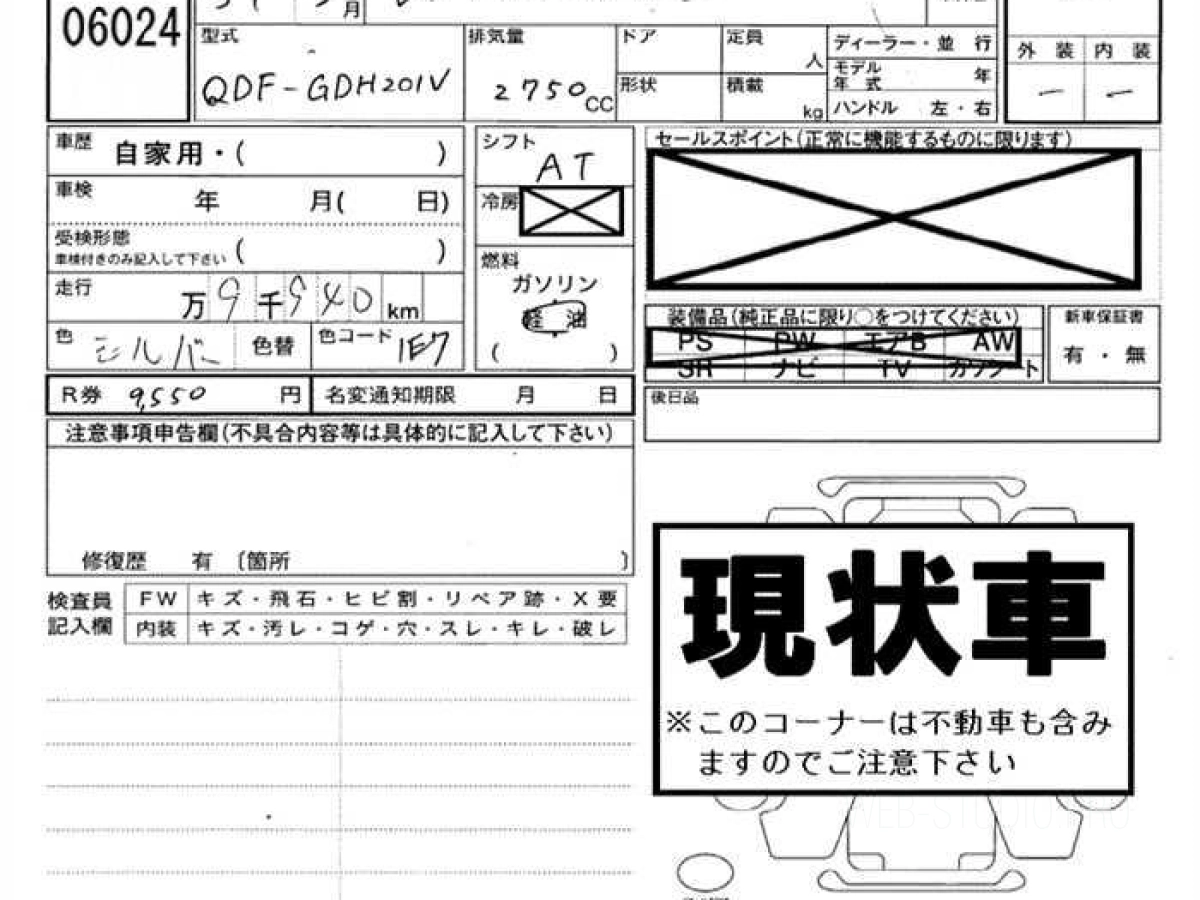 06024
月
型式
QDF-GDH201V
排気量
2750CC
ドア
形状
定員
人
積載
kg
ディーラー・並 行
モデル
年 式 年
ハンドル 左・右
外 装 内 装
ー ー
車歴 自家用・( )
車検 年 月( 日)
受検形態 ( )
車検付きのみ記入して下さい
走行 万9千940km
色 シルバー 色替 色コード 1E7
シフト
AT
冷房
燃料
ガソリン
軽油
( )
セールスポイント(正常に機能するものに限ります)
装備品(純正品に限り○をつけてください)
PS PW エアB AW
SR ナビ TV カワシート
新車保証書
有・無
R券 9,550 円 名変通知期限 月 日
後日品
注意事項申告欄(不具合内容等は具体的に記入して下さい)
修復歴 有 〔箇所 〕
検査員
記入欄
FW キズ・飛石・ヒビ割・リペア跡・X要
内装 キズ・汚レ・コゲ・穴・スレ・キレ・破レ
現状車
※このコーナーは不動車も含み
ますのでご注意下さい